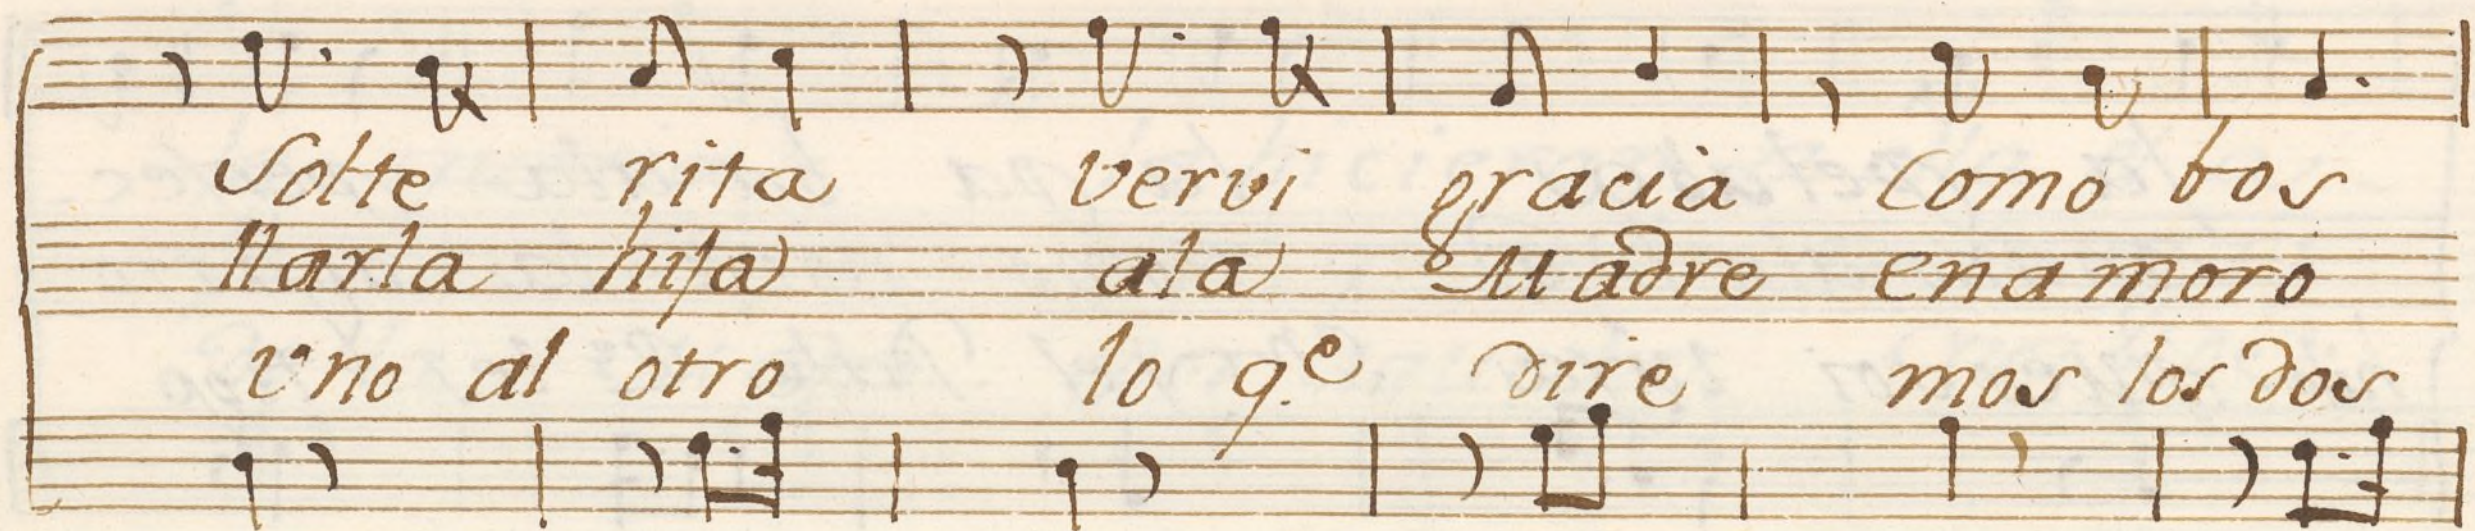 Solte rita vervi gracia Como bos
llarla hija ala Madre enamoro
vno al otro lo q.e dire mos los dos